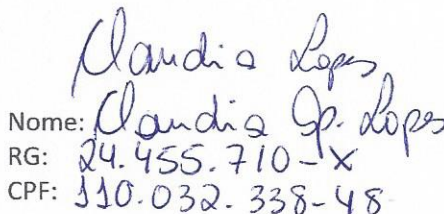 Claudia Lopes
Nome: Claudia Ap. Lopes
RG: 24.455.710-X
CPF: 110.032.338-48